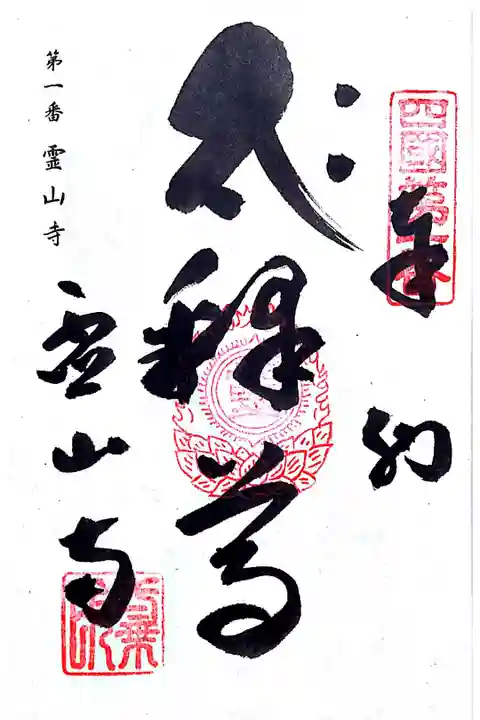 四國第一番
奉納
釋尊
第一番 霊山寺
霊山寺